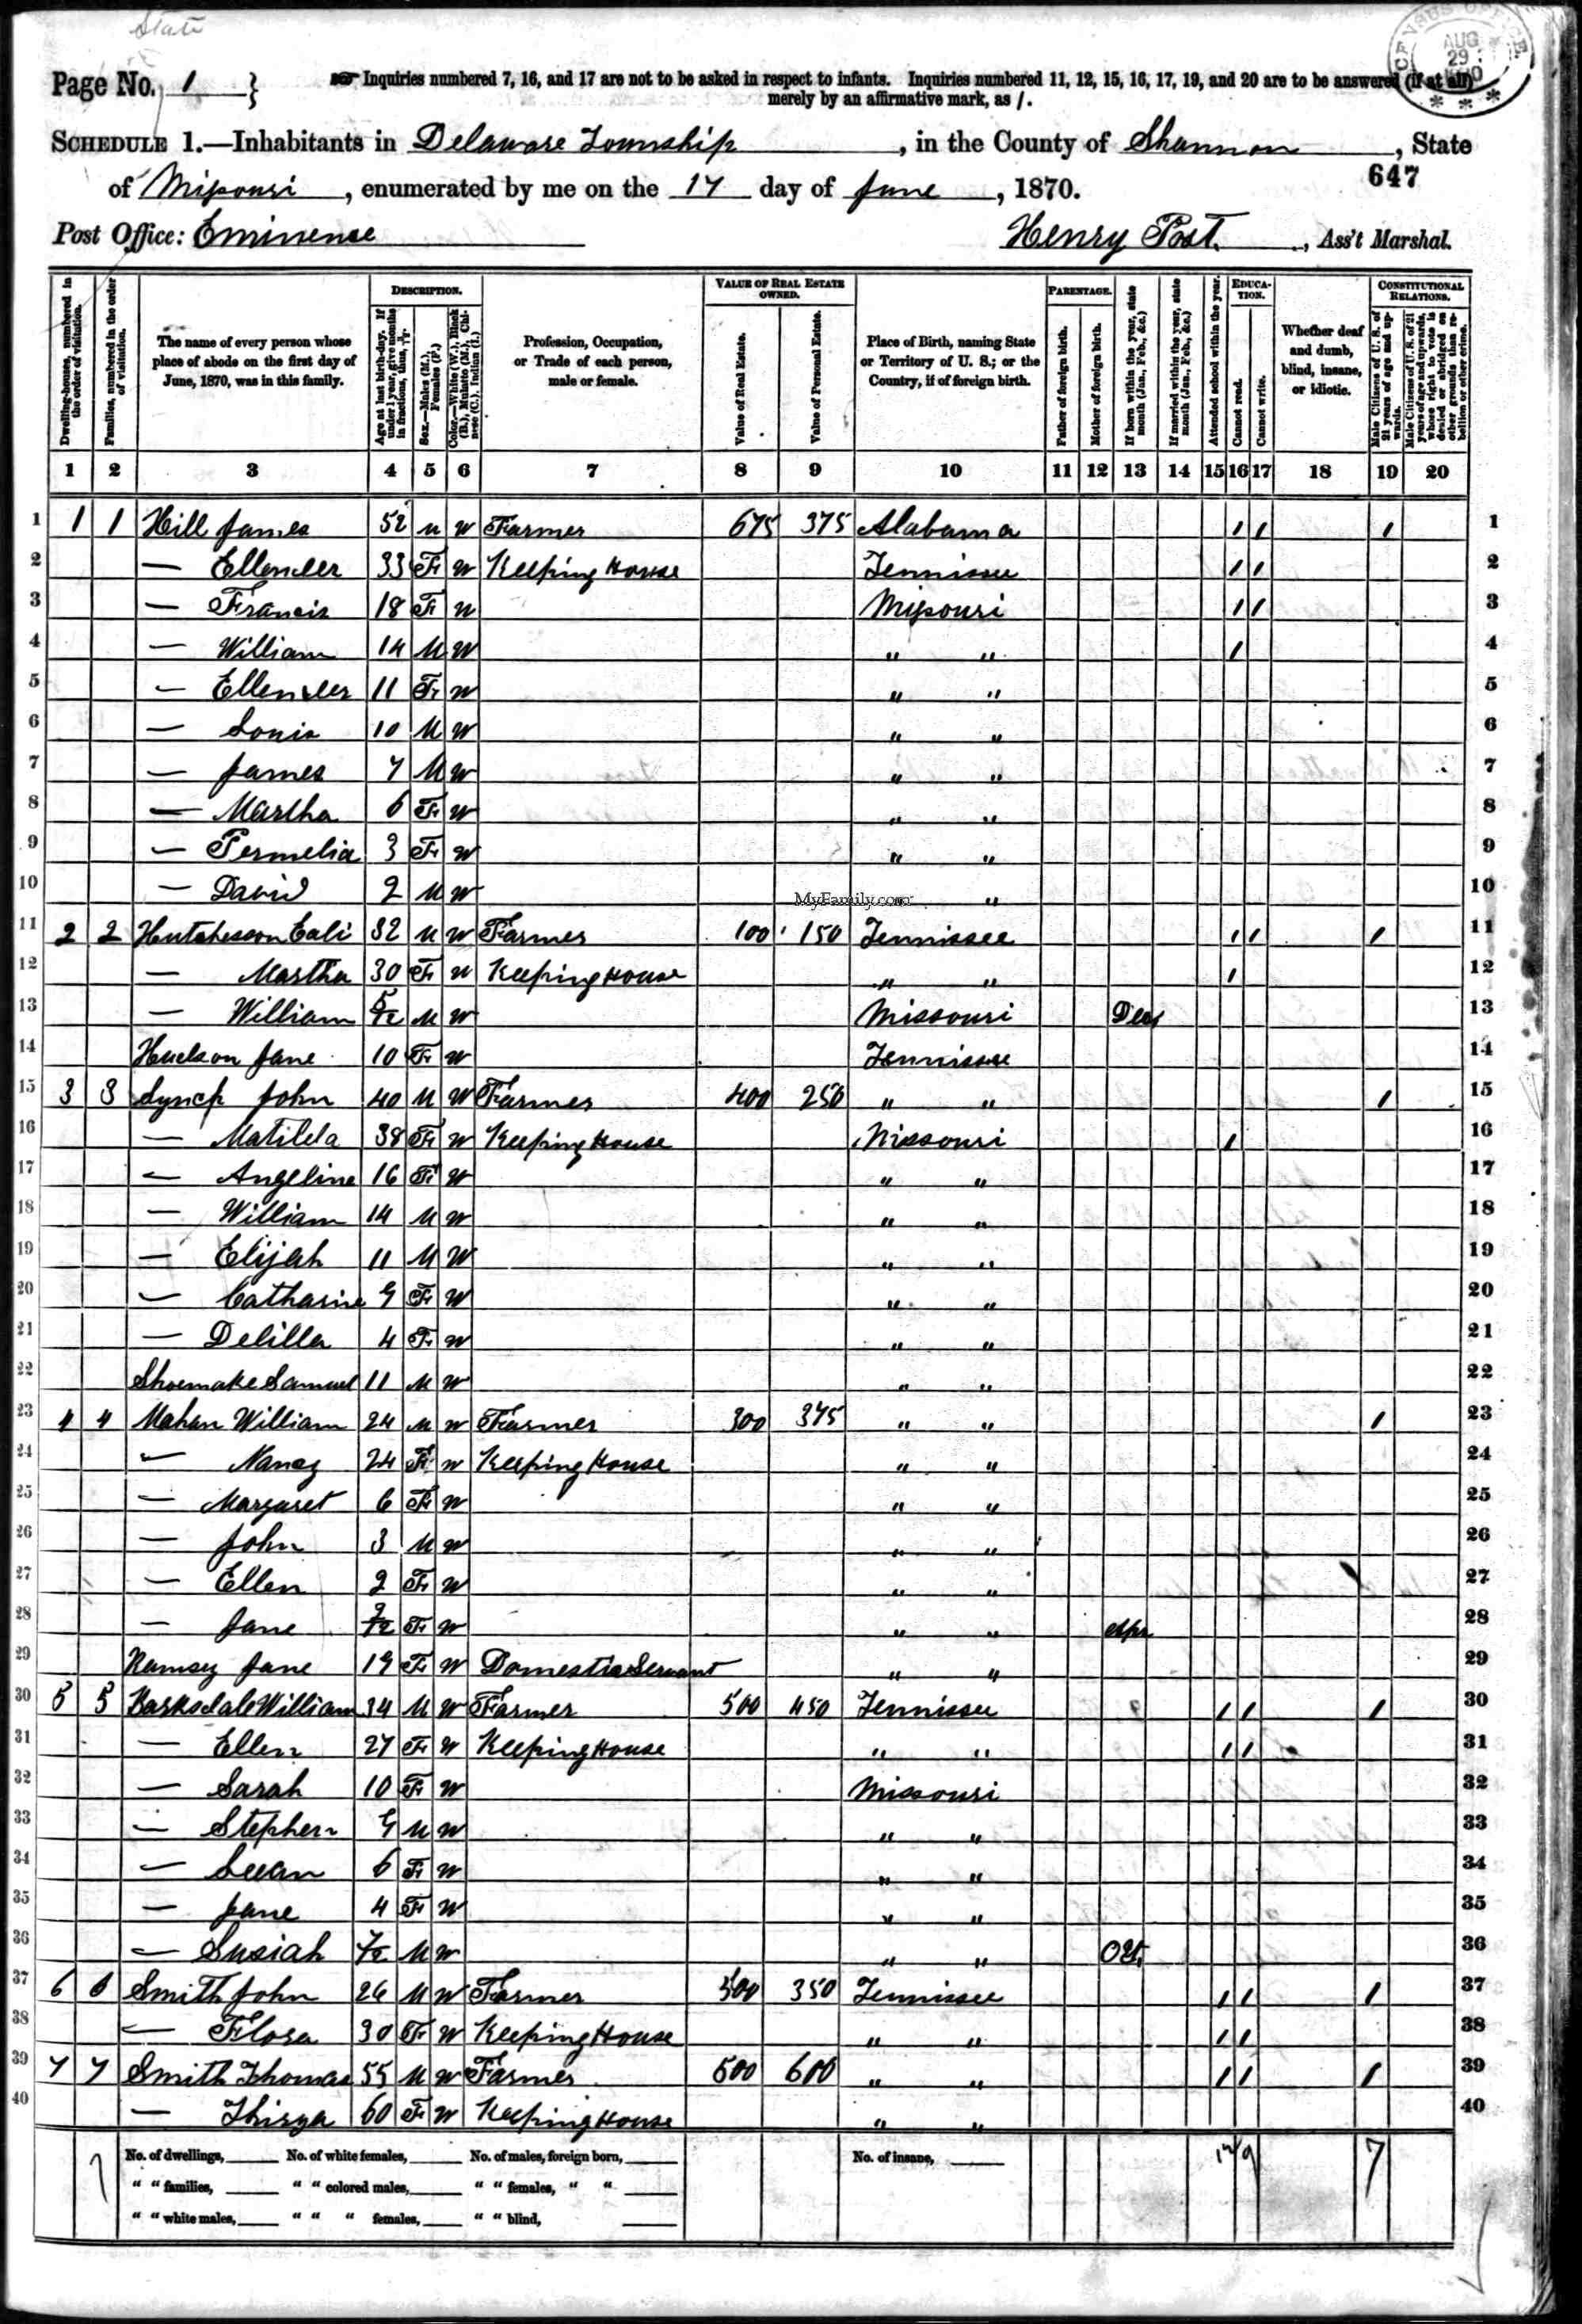 State
Page No. 1 } Inquiries numbered 7, 16, and 17 are not to be asked in respect to infants. Inquiries numbered 11, 12, 15, 16, 17, 19, and 20 are to be answered (if at all)
merely by an affirmative mark, as /.
CENSUS OFFICE AUG 29
SCHEDULE 1.—Inhabitants in Delaware Township, in the County of Shannon, State
of Missouri, enumerated by me on the 17 day of June, 1870.
647
Post Office: Eminense
Henry Post, Ass't Marshal.
Dwelling-houses, numbered in the order of visitation.
Families, numbered in the order of visitation.
The name of every person whose place of abode on the first day of June, 1870, was in this family.
DESCRIPTION.
Age at last birth-day. If under 1 year, give months in fractions, thus,
Sex.—Males (M.), Females (F.)
Color.—White (W.), Black (B.), Mulatto (M.), Chinese (C.), Indian (I.)
Profession, Occupation, or Trade of each person, male or female.
VALUE OF REAL ESTATE OWNED.
Value of Real Estate.
Value of Personal Estate.
Place of Birth, naming State or Territory of U. S.; or the Country, if of foreign birth.
PARENTAGE.
Father of foreign birth.
Mother of foreign birth.
If born within the year, state month (Jan., Feb., &c.)
If married within the year, state month (Jan., Feb., &c.)
Attended school within the year.
EDUCATION.
Cannot read.
Cannot write.
Whether deaf and dumb, blind, insane, or idiotic.
CONSTITUTIONAL RELATIONS.
Male Citizens of U. S. of 21 years of age and upwards.
Male Citizens of U. S. of 21 years of age and upwards, whose right to vote is denied or abridged on other grounds than rebellion or other crime.
1 2 3 4 5 6 7 8 9 10 11 12 13 14 15 16 17 18 19 20
1 1 1 Hill James 52 M W Farmer 675 375 Alabama / / / 1
2 — Ellender 33 F W Keeping House Tennissee / / 2
3 — Francis 18 F W Missouri / / 3
4 — William 14 M W " " / 4
5 — Ellender 11 F W " " 5
6 — Louis 10 M W " " 6
7 — James 7 M W " " 7
8 — Martha 6 F W " " 8
9 — Permelia 3 F W " " 9
10 — David 2 M W MyFamily.com " 10
11 2 2 Hutchesson Eali 32 M W Farmer 100 150 Tennissee / / / 11
12 — Martha 30 F W Keeping House " " / 12
13 — William 5/12 M W Missouri Dec 13
14 Hudson Jane 10 F W Tennissee 14
15 3 3 Lynch John 40 M W Farmer 400 250 " " / 15
16 — Matilda 38 F W Keeping House Missouri / 16
17 — Angeline 16 F W " " 17
18 — William 14 M W " " 18
19 — Elijah 11 M W " " 19
20 — Catharine 9 F W " " 20
21 — Delilla 4 F W " " 21
22 Shoemake Samuel 11 M W " " 22
23 4 4 Mahan William 24 M W Farmer 300 375 " " / 23
24 — Nancy 24 F W Keeping House " " 24
25 — Margaret 6 F W " " 25
26 — John 3 M W " " 26
27 — Ellen 2 F W " " 27
28 — Jane 2/12 F W " " Apr 28
29 Ramsey Jane 19 F W Domestic Servant " " 29
30 5 5 Barksdale William 34 M W Farmer 500 450 Tennissee / / / 30
31 — Ellen 27 F W Keeping House " " / / 31
32 — Sarah 10 F W Missouri 32
33 — Stephen 9 M W " " 33
34 — Susan 6 F W " " 34
35 — Jane 4 F W " " 35
36 — 7/12 M W " " Oct. 36
37 6 6 Smith John 26 M W Farmer 500 350 Tennissee / / / 37
38 — Flora 30 F W Keeping House " " / / 38
39 7 7 Smith Thomas 55 M W Farmer 500 600 " " / / / 39
40 — Thirza 60 F W Keeping House " " 40
No. of dwellings, No. of white females, No. of males, foreign born, No. of insane, 12/9 7
" " families, " " colored males, " " females, " "
" " white males, " " " females, " " blind,